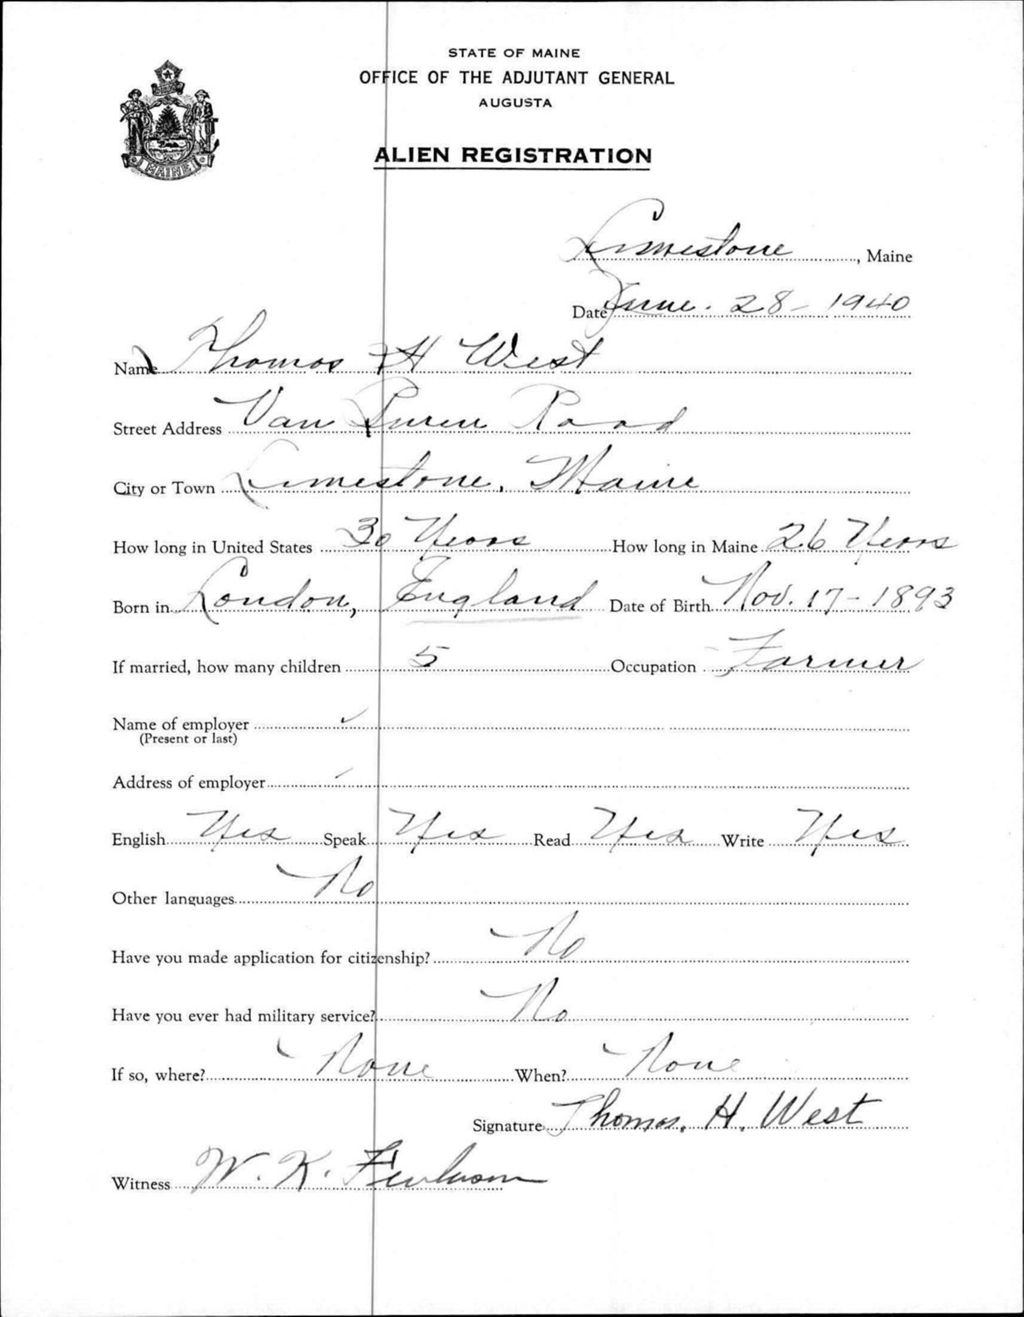 STATE OF MAINE
OFFICE OF THE ADJUTANT GENERAL
AUGUSTA
ALIEN REGISTRATION
MAINE
Limestone, Maine
Date June. 28-1940
Name Thomas H West
Street Address Van Buren Road
City or Town Limestone, Maine
How long in United States 30 Years How long in Maine 26 Years
Born in London, England Date of Birth Nov. 17-1893
If married, how many children 5 Occupation Farmer
Name of employer
(Present or last)
Address of employer
English Yes Speak Yes Read Yes Write Yes
Other languages No
Have you made application for citizenship? No
Have you ever had military service? No
If so, where? None When? None
Signature Thomas. H. West
Witness W. K.